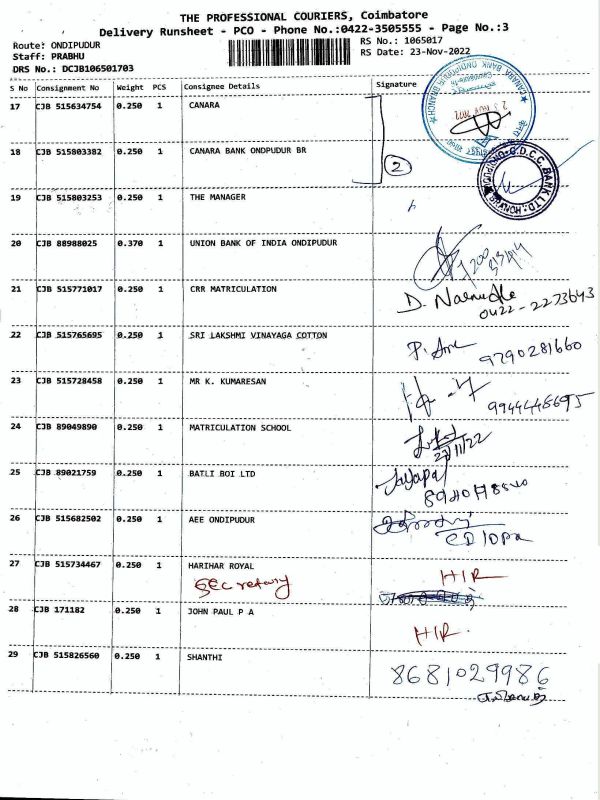 THE PROFESSIONAL COURIERS, Coimbatore
Delivery Runsheet - PCO - Phone No.:0422-3505555 - Page No.:3
Route: ONDIPUDUR RS No.: 1065017
Staff: PRABHU RS Date: 23-Nov-2022
DRS No.: DCJB106501703
S No Consignment No Weight PCS Consignee Details Signature
17 CJB 515634754 0.250 1 CANARA
18 CJB 515803382 0.250 1 CANARA BANK ONDPUDUR BR
2
19 CJB 515803253 0.250 1 THE MANAGER
20 CJB 88988025 0.370 1 UNION BANK OF INDIA ONDIPUDUR
21 CJB 515771017 0.250 1 CRR MATRICULATION
0422-2273643
22 CJB 515765695 0.250 1 SRI LAKSHMI VINAYAGA COTTON
9790281660
23 CJB 515728458 0.250 1 MR K. KUMARESAN
24 CJB 89049890 0.250 1 MATRICULATION SCHOOL
25 CJB 89021759 0.250 1 BATLI BOI LTD
Jayapal
26 CJB 515682502 0.250 1 AEE ONDIPUDUR
27 CJB 515734467 0.250 1 HARIHAR ROYAL
Secretary H/R
28 CJB 171182 0.250 1 JOHN PAUL P A
H/R.
29 CJB 515826560 0.250 1 SHANTHI
8681029986